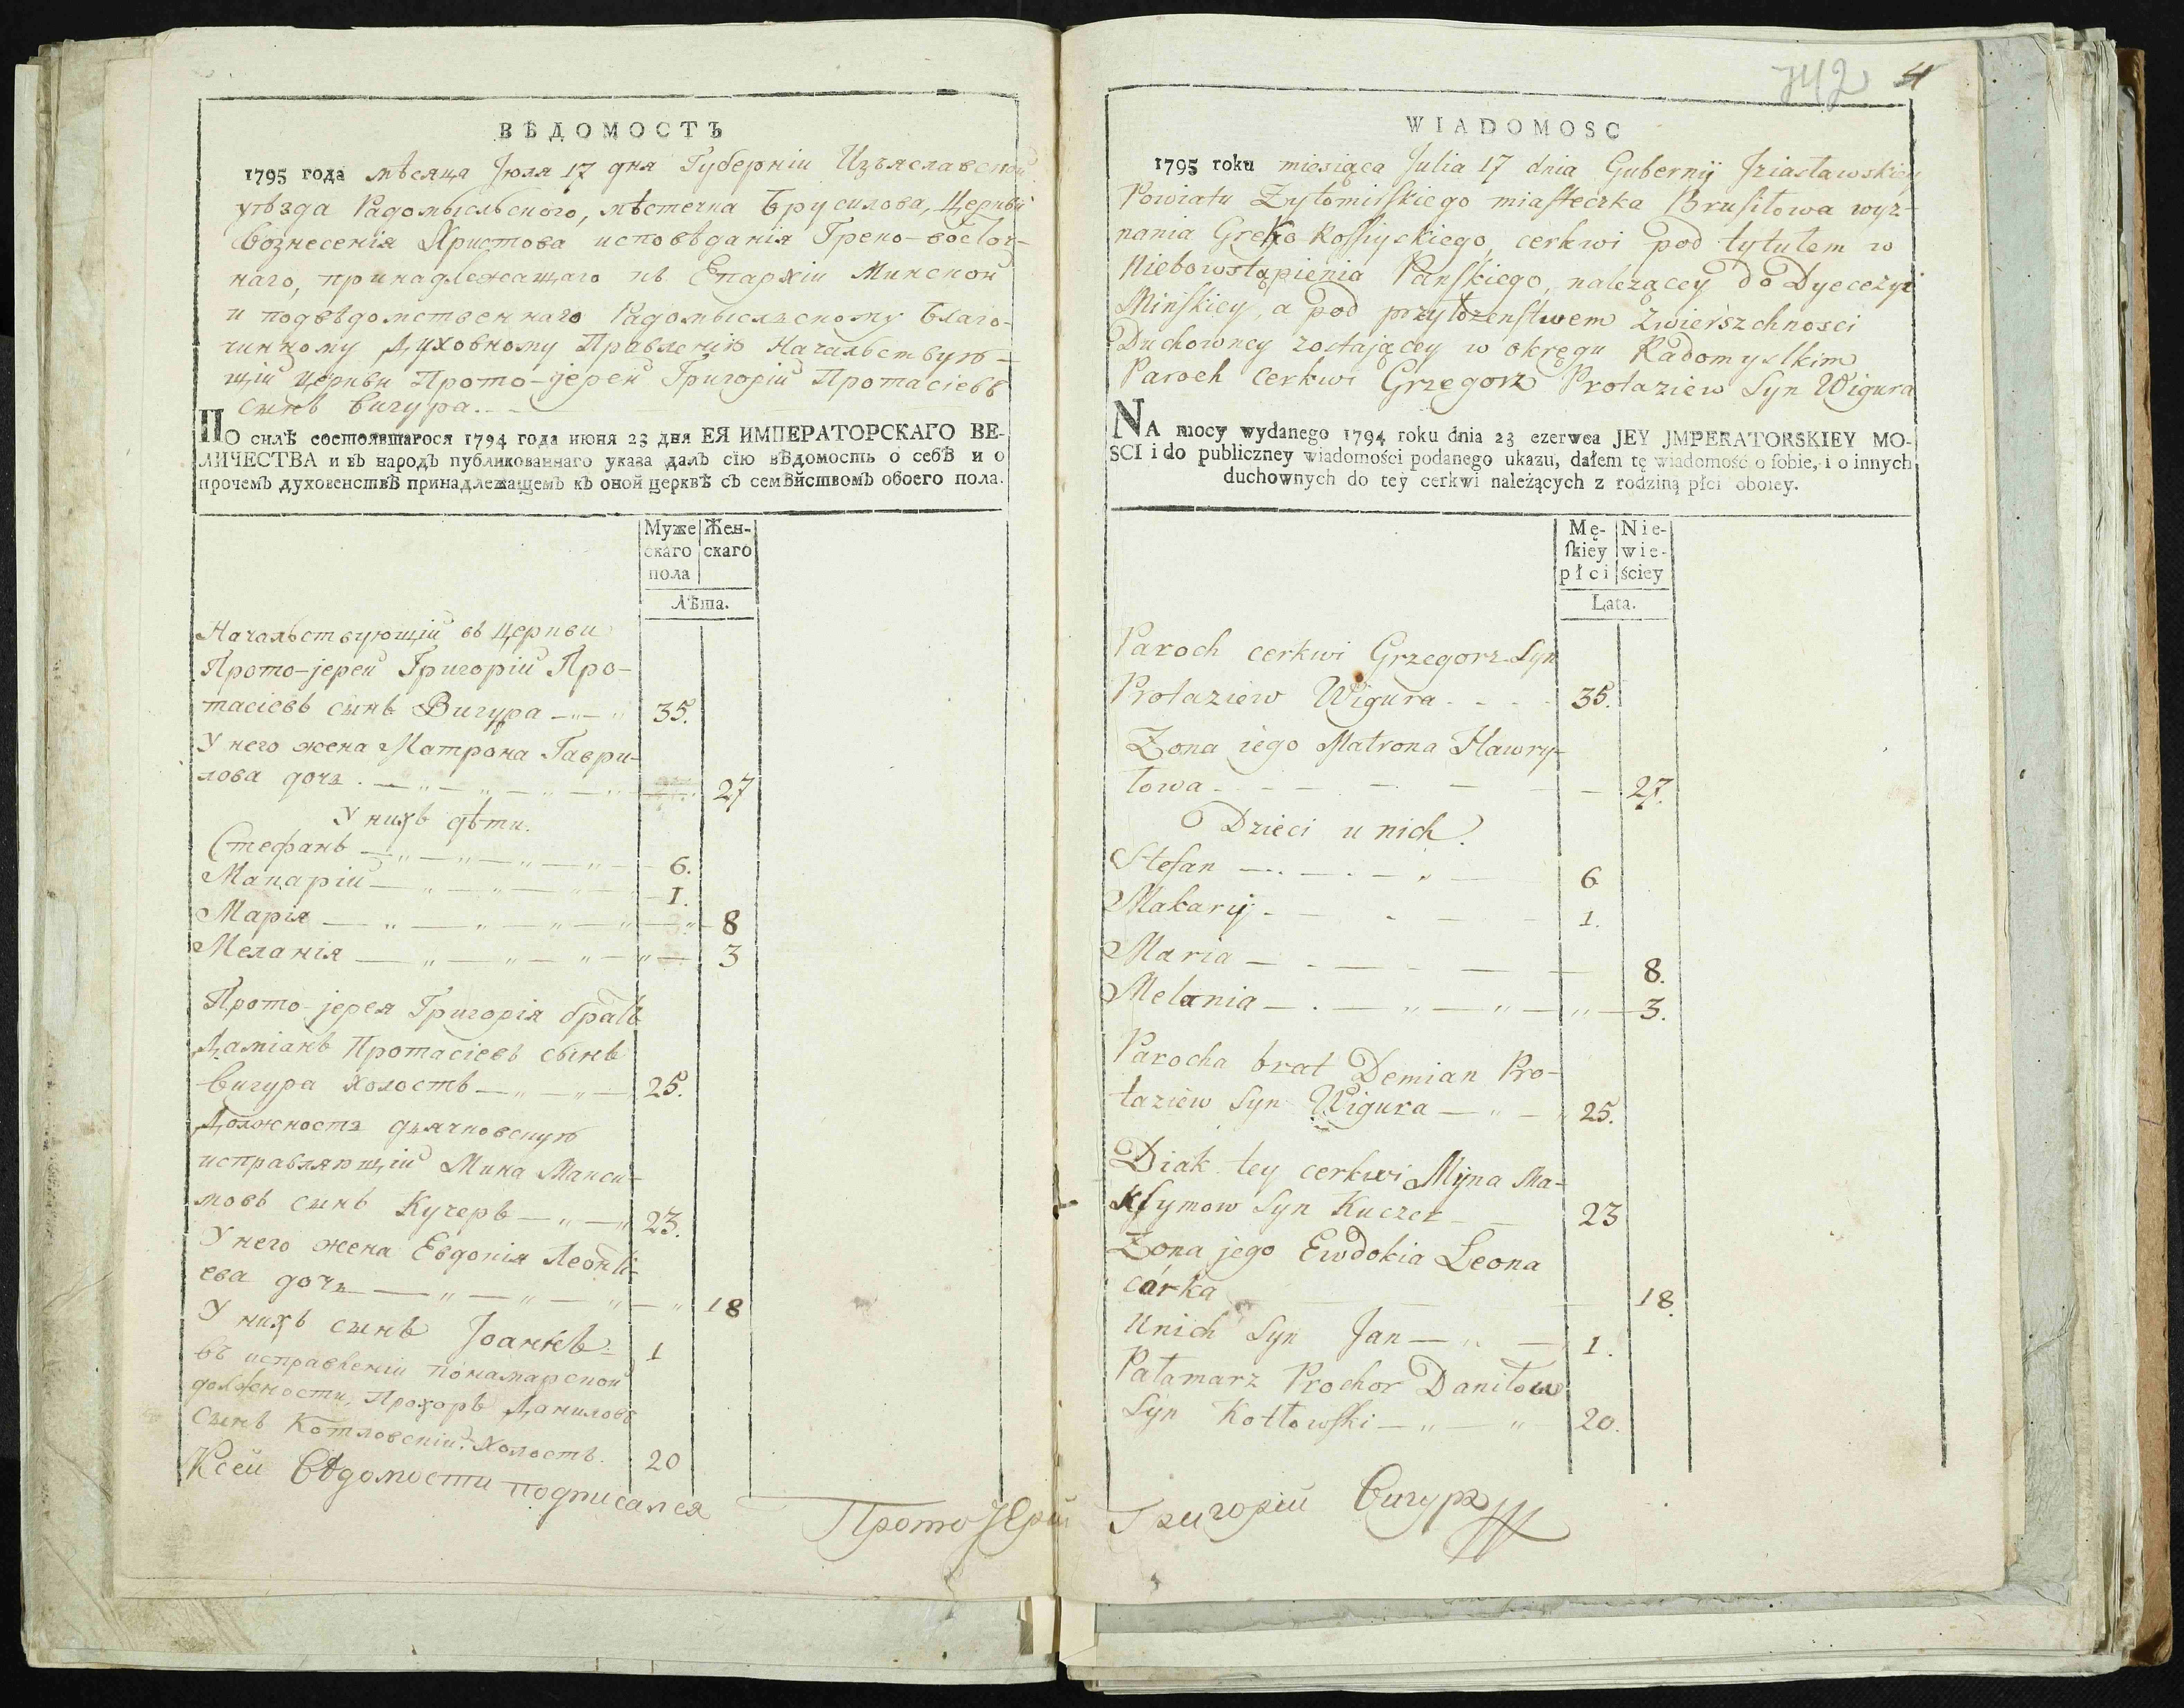 ВѢДОМОСТЬ
1795 года мѣсяца Јюля 17 дня Губерніи Изъяславской
уѣзда Радомысльского, мѣстечка Брусилова, Церкви
Вознесенія Христова исповѣданія Греко-восточ-
наго, принадлежащаго къ Епархіи Минской
и подвѣдомственнаго Радомысльскому Благо-
чинному Духовному Правленію Начальствую-
щій Церкви Прото-јерей Григорій Протасіевъ
сынъ Вигура.
ПО силѣ состоявшагося 1794 года июня 23 дня ЕЯ ИМПЕРАТОРСКАГО ВЕ-
ЛИЧЕСТВА и въ народъ публикованнаго указа далъ сїю вѣдомость о себѣ и о
прочемъ духовенствѣ принадлежащемъ къ оной церквѣ съ семѣйствомъ обоего пола.
Муже Жен-
скаго скаго
пола
Лѣта.
Начальствующій въ Церкви
Прото-јерей Григорій Про-
тасіевъ сынъ Вигура 35.
У него жена Матрона Гаври-
лова дочь 27
У нихъ дѣти.
Стефанъ 6.
Макарій 1.
Марія 8
Меланія 3
Прото-јерея Григорія братъ
Даміанъ Протасіевъ сынъ
Вигура холостъ 25.
Должность дьячковскую
исправляющій Мина Макси-
мовъ сынъ Кучеръ 23.
У него жена Евдокія Леонті-
ева дочь 18
У нихъ сынъ Јоаннъ 1
въ исправленіи понамарской
должности, Прохоръ Даниловъ
Сынъ Котловскій. Холостъ. 20
К сей Вѣдомости подписался Прото Јерей Григорій Вигура
742 4
WIADOMOSC
1795 roku miesiąca Julia 17 dnia Gubernij Jziasławskiey
Powiatu Zytomirskiego miasteczka Brusiłowa wyz-
nania Greko Rossiyskiego, cerkwi pod tytułem w
Niebowstąpienia Pańskiego, należącey do Dyecezyi
Minskiey, a pod przyłożenstwem Zwierszchnosci
Duchowney zostającey w okręgu Radomyslkim
Paroch Cerkwi Grzegorz Protaziew Syn Wigura
NA mocy wydanego 1794 roku dnia 23 czerwca JEY JMPERATORSKIEY MO-
SCI i do publiczney wiadomości podanego ukazu, dałem tę wiadomość o sobie, i o innych
duchownych do tey cerkwi należących z rodziną płci oboiey.
Mę- Nie-
skiey wie-
płci ściey
Lata.
Paroch cerkwi Grzegorz Syn
Protaziew Wigura 35.
Zona iego Matrona Hawry-
łowa 27.
Dzieci u nich.
Stefan 6
Makaryj 1.
Maria 8.
Melania 3.
Parocha brat Demian Pro-
taziew Syn Wigura 25.
Diak tey cerkwi Mijna Ma-
ksymow Syn Kuczer 23
Zona jego Ewdokia Leona
carka 18.
U nich Syn Jan 1.
Pałamarz Prochor Daniłow
Syn Kotłowski 20.